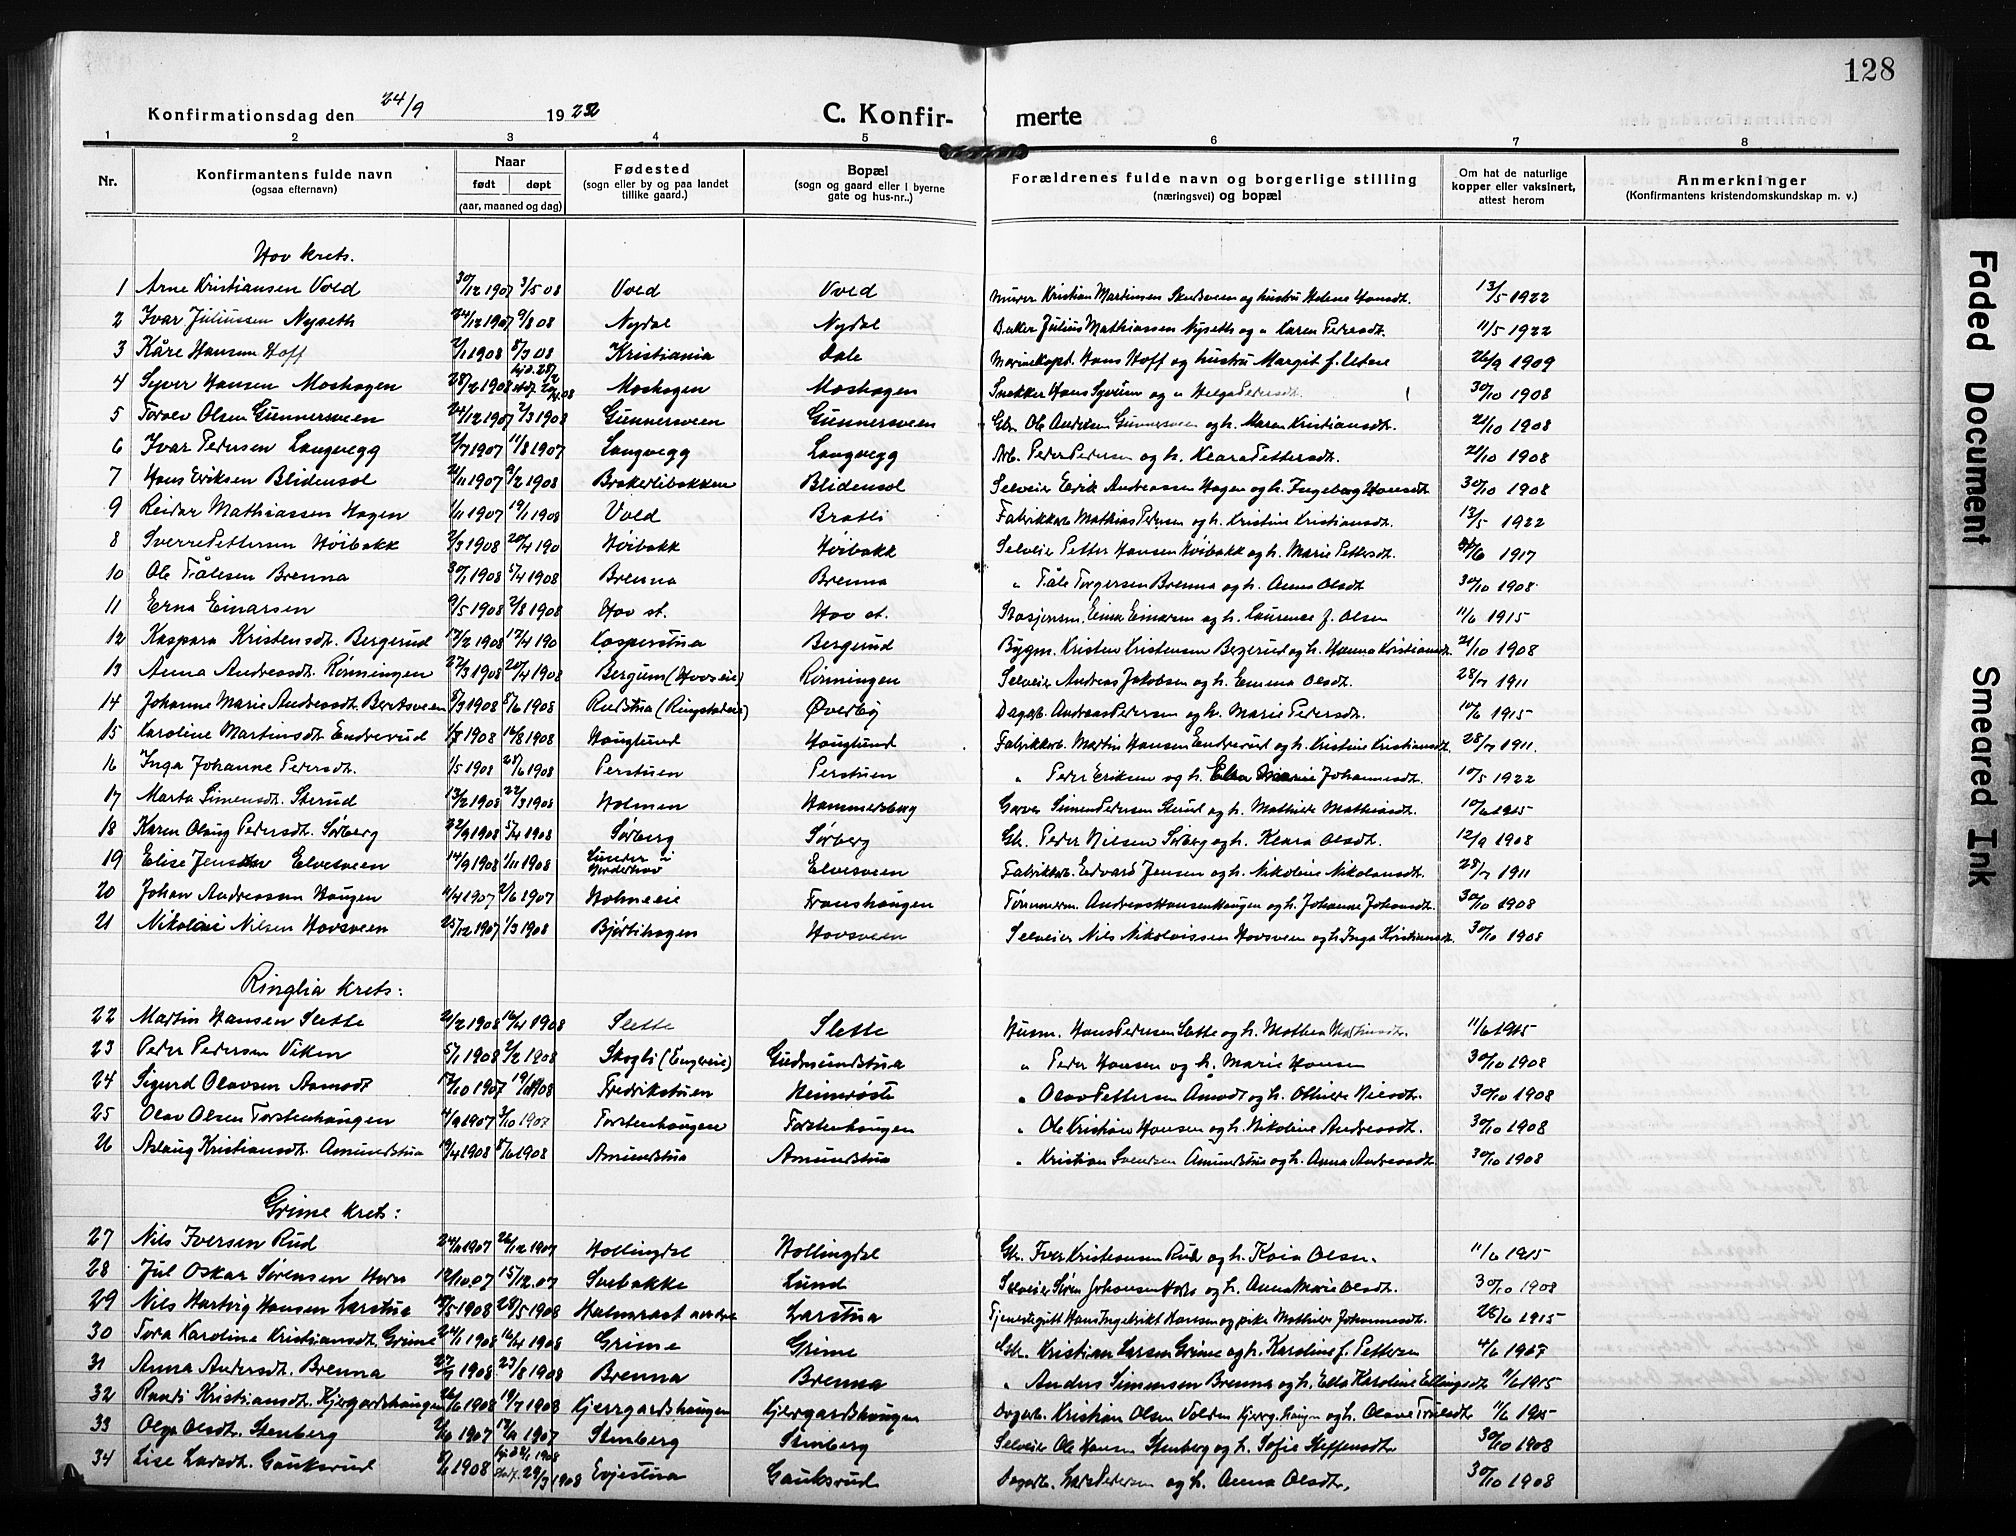 128
Konfirmationsdag den 24/9 1922 C. Konfir- merte
1 2 3 4 5 6 7 8
Nr. Konfirmantens fulde navn (ogsaa efternavn) Naar født døpt (aar, maaned og dag) Fødested (sogn eller by og paa landet tillike gaard.) Bopæl (sogn og gaard eller i byerne gate og hus-nr..) Forældrenes fulde navn og borgerlige stilling (næringsvei) og bopæl Om hat de naturlige kopper eller vaksinert, attest herom Anmerkninger (Konfirmantens kristendomskundskap m. v.)
Hov krets.
1 Arne Kristiansen Vold 30/12 1907 3/5 08 Vold Vold Murer Kristian Martinsen og hustru Helene Hansdt. 13/5 1922
2 Ivar Juliussen Nyseth 24/12 1907 9/8 08 Nydal Nydal Julius Mathiassen Nyseth og " Karen Pedersdt. 11/5 1922
3 Kåre Hansen Hoff 2/1 1908 8/3 08 Kristiania Dale Marinekapt. Hans Hoff og hustru Margit f. 26/9 1909
4 Syver Hansen Moshagen 28/2 1908 Moshagen Moshagen Snekker Hans Syversen og " Helga Pedersdt. 30/10 1908
5 Torlev Olsen Gunnersveen 24/12 1907 2/3 1908 Gunnersveen Gunnersveen Gbr. Ole Andersen Gunnersveen og h. Maren Kristiansdt. 21/10 1908
6 Ivar Pedersen Langvegg 2/7 1907 11/8 1907 Langvegg Langvegg Arb. Peder Pedersen og h. Klara Pettersdt. 21/10 1908
7 Hans Eriksen Blidensol 21/11 1907 9/2 1908 Brakerlibakken Blidensol Selveier Erik Andreassen Hagen og h. Ingeborg Hansdt 30/10 1908
9 Reidar Mathiassen Hagen 1/11 1907 19/1 1908 Vold Bratli Fabrikkarb. Mathias Pedersen og h. Kristine Kristiansdt. 13/5 1922
8 Sverre Pettersen Höibakk 2/3 1908 20/4 190 Höibakk Höibakk Selveier Petter Hansen Höibakk og h. Marie Pettersdt. 1917
10 Ole Pålesen Brenna 30/1 1908 5/4 1908 Brenna Brenna " Påle Torgersen Brenna og h. Anne Olsdt. 30/10 1908.
11 Erna Einarsen 9/5 1908 2/8 1908 Hov st. Hov st. Einar Einarsen og h. Laurence f. Olsen 11/6 1915
12 Kaspara Kristensdt. Bergerud 17/2 1908 12/4 190 Kasperstua Bergerud Bygm. Kristen Kristensen Bergerud og h. Hanna Kristiansdt. 21/10 1908
13 Anna Andreasdt. Rönningen 27/3 1908 20/4 1908 Bergum (Hovseie) Rönningen Selveier Andreas Jakobsen og h. Emma Olsdt. 28/7 1911
14 Johanne Marie Andreasdt. Beritsveen 5/3 1908 8/6 1908 Rudstua (Ringstadeie) Øverby Dagarb. Andreas Pedersen og h. Marie Pedersdt. 10/6 1915
15 Karoline Martinsdt. Endrerud 1908 16/8 1908 Hauglund Hauglund Fabrikkarb. Martin Hansen Endrerud og h. Kristine Kristiansdt. 28/7 1911.
16 Inga Johanne Pedersdt. 1/5 1908 28/6 1908 Perstuen Perstuen " Peder Eriksen og h. Marie Johannesdt. 10/5 1922
17 Marta Simensdt. Sterud 13/2 1908 22/3 1908 Holmen Hammersberg Garver Simen Pedersen Sterud og h. Mathilde Mathiasdt. 10/6 1915
18 Karen Olaug Pedersdt. Sørberg 1908 5/4 1908 Sørberg Sørberg Gbr. Peder Nilsen Sørberg og h. Klara Olsdt. 12/9 1908
19 Elise Jensdtr Elvesveen 14/9 1908 1/11 1908 Lunder i Norderhov Elvesveen Fabrikkarb. Edvard Jensen og h. Nikoline Nikolaisdt. 28/7 1911
20 Johan Andreassen Haugen 11/4 1907 2/6 1907 Holmeeie Franshaugen Tømmerm. Andreas Hansen Haugen og h. Johanne Johansdt. 30/10 1908
21 Nikolai Nilsen Hovsveen 25/12 1907 1/3 1908 Bjørlihagen Hovsveen Selveier Nils Nikolaissen Hovsveen og h. Inga Kristiansdt. 30/10 1908
Ringlia krets:
22 Martin Hansen Slette 21/2 1908 16/4 1908 Slette Slette Husm. Hans Pedersen Slette og h. Mathea Martinsdt. 11/6 1915
23 Peder Pedersen Viken 5/1 1908 2/2 1908 Skogli (Engereie) Gudmundstua " Peder Hansen og h. Marie Hansen 30/10 1908
24 Sigurd Olavsen Aamodt 17/10 1907 1908 Fredrikstuen Heimröste " Olav Pettersen Åmodt og h. Othilde Nilsdt. 30/10 1908
25 Olav Olsen Torstenhaugen 4/9 1907 3/10 1907 Torstenhaugen Torstenhaugen " Ole Kristian Hansen og h. Nikoline Andreasdt. 30/10 1908
26 Aslaug Kristiansdt. Amundstua 19/4 1908 8/6 1908 Amundstua Amundstua " Kristian Svendsen Amundstua og h. Anna Andreasdt. 30/10 1908
Grime krets:
27 Nils Iversen Rud 1907 26/12 1907 Hollingdal Hollingdal Gbr. Iver Kristiansen Rud og h. Kaia Olsen. 11/6 1915
28 Jul Oskar Sørensen Horn 12/10.07 15/12.07 Sorbakke Lund Selveier Søren Johansen Horn og h. Anne Marie Olsdt. 30/10 1908
29 Nils Hartvig Hansen Larstua 1908 28/5 1908 Halmrast nordre Larstua Tjenestegutt Hans Ingebrikt Hansen og pike Mathilde Johannesdt. 28/6 1915
30 Tora Karoline Kristiansdt. Grime 24/1 1908 16/4 1908 Grime Grime Gbr. Kristian Larsen Grime og h. Karoline f. Pettersen 4/6 1917
31 Anna Andersdt. Brenna 1908 23/8 1908 Brenna Brenna " Anders Simensen Brenna og h. Ella Karoline Ellingsdt 11/6 1915
32 Randi Kristiansdt. Kjergardshaugen 26/6 1908 19/7 1908 Kjerrgardshaugen Kjergardshaugen Dagarb. Kristian Olsen Volden Kjerrg.haugen og h. Olave 11/6 1915
33 Olga Olsdt. Stenberg 1907 1907 Stenberg Stenberg Selveier Ole Hansen Stenberg og h. Sofie Steffensdt 30/10 1908
34 Lise Larsdt. Gauksrud 1908 Evjestua Gauksrud Dagarb. Lars Pedersen og h. Anna Olsdt. 30/10 1908
Faded Document
Smeared Ink